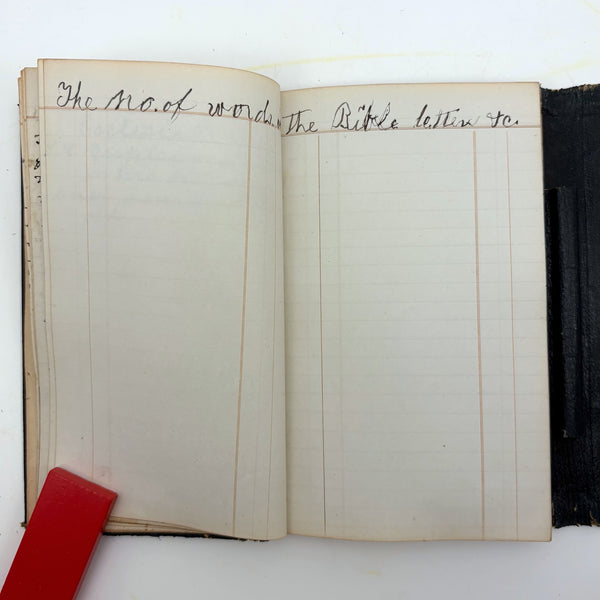 The No. of words in The Bible letters &c.